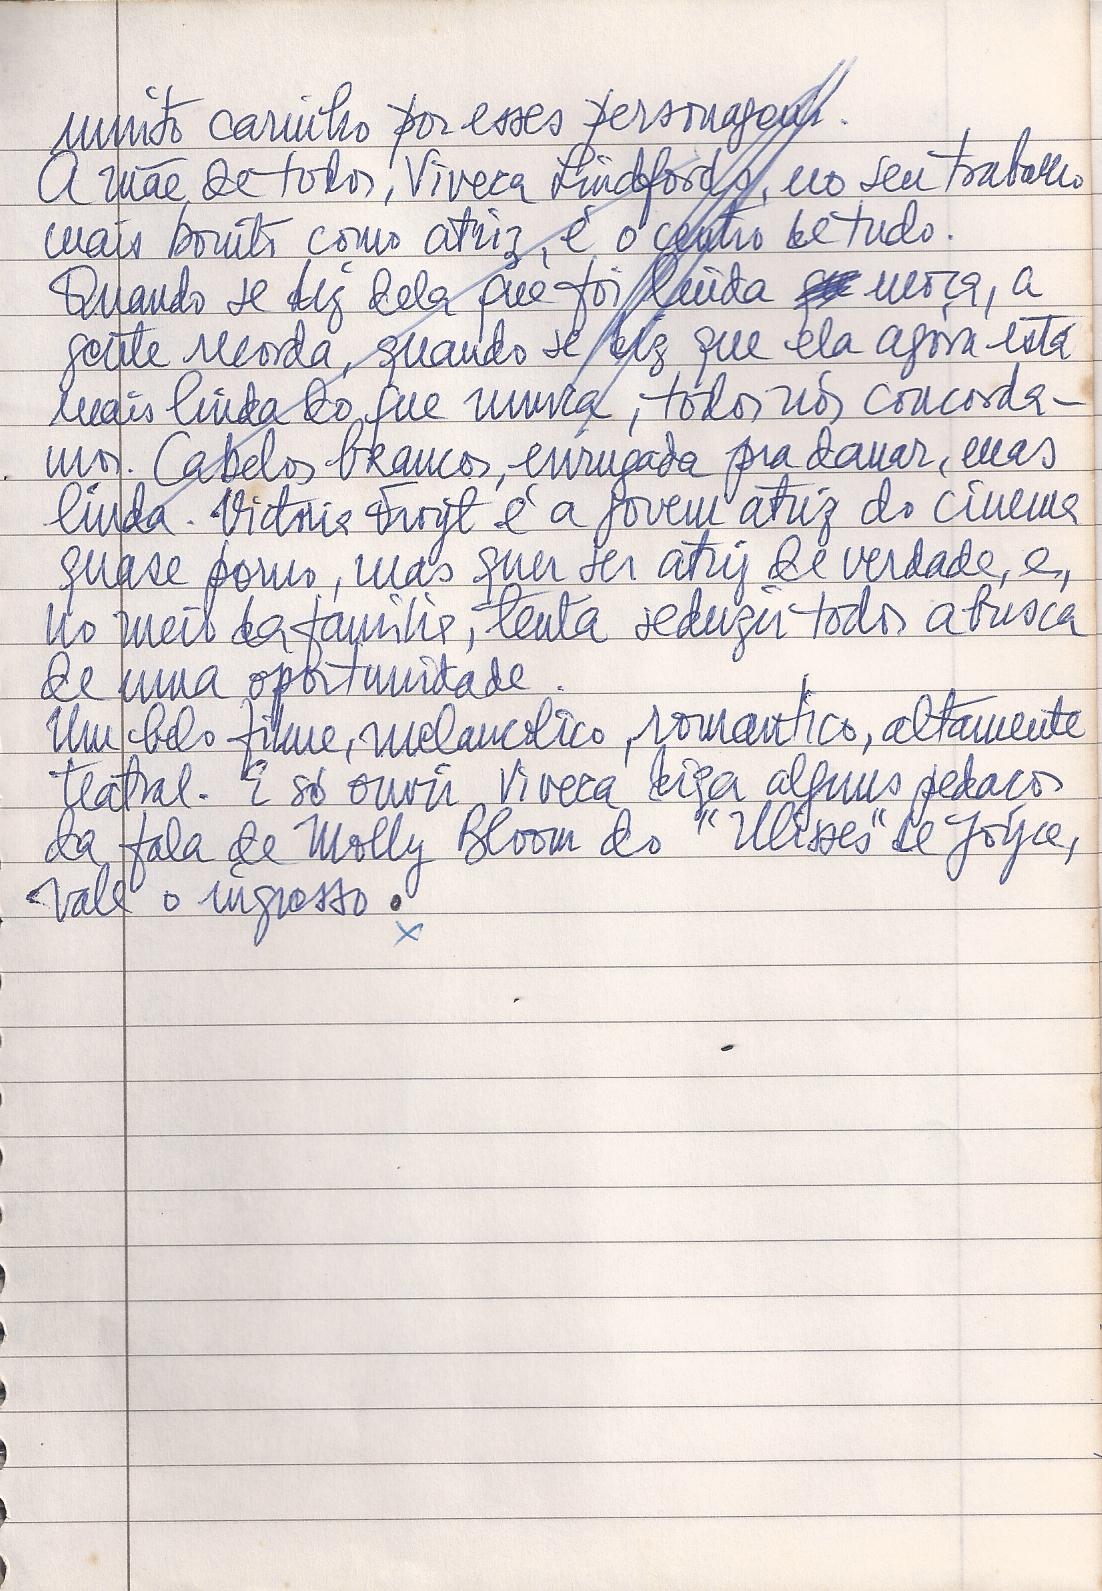 muito carinho por esses personagens.
A mãe de todos, Viveca Lindfords, no seu trabalho
mais bonito como atriz, é o centro de tudo.
Quando se diz dela que foi linda moça, a
gente recorda, quando se diz que ela agora está
mais linda do que nunca, todos nós concorda-
mos. Cabelos brancos, enrugada pra danar, mas
linda. Victoria Froyt é a jovem atriz do cinema
quase porno, mas quer ser atriz de verdade, e,
no meio da familia, tenta seduzir todos a busca
de uma oportunidade.
Um belo filme, melancolico, romantico, altamente
teatral. E só ouvir Viveca diza alguns pedaços
da fala de Molly Bloom do "Ulisses" de Joyce,
vale o ingresso.
x